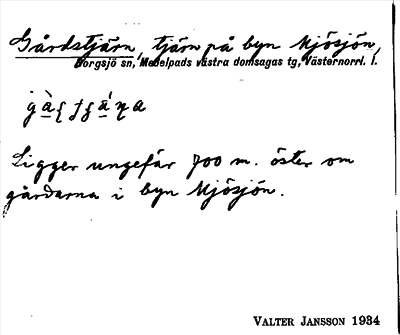 Gårdstjärn, tjärn på byn Mjösjön,
Borgsjö sn, Medelpads västra domsagas tg, Västernorrl. l.
Ligger ungefär 700 m. öster om
gårdarna i byn Mjösjön.
VALTER JANSSON 1934